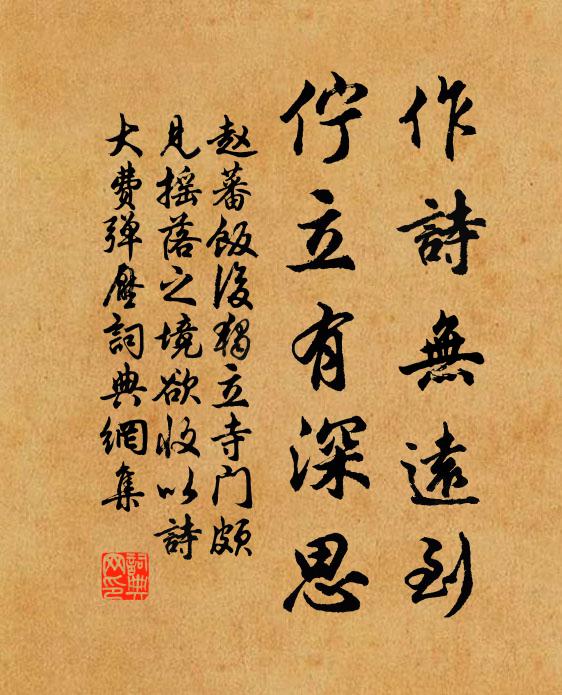 作詩無遠到
佇立有深思
赵蕃飯後獨立寺门頗
見摇落之境欲收以詩
大费弹壓詞典網集
詞典网印